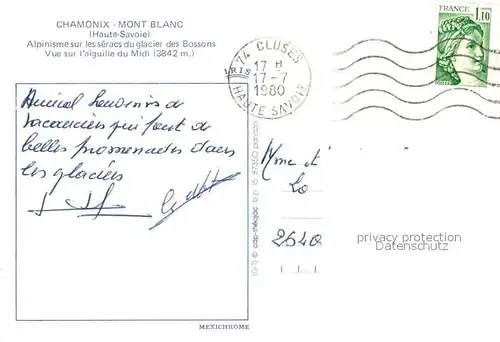 CHAMONIX - MONT BLANC
(Haute-Savoie)
Alpinisme sur les séracs du glacier des Bossons
Vue sur l'aiguille du Midi (3842 m.)
74 CLUSES
17 H
17-7
1980
HAUTE SAVOIE
FRANCE
1,10
Amical souvenirs de
vacanciers qui font de
belles promenades dans
les glaciers
Mme et
2640
privacy protection
Datenschutz
MEXICHROME